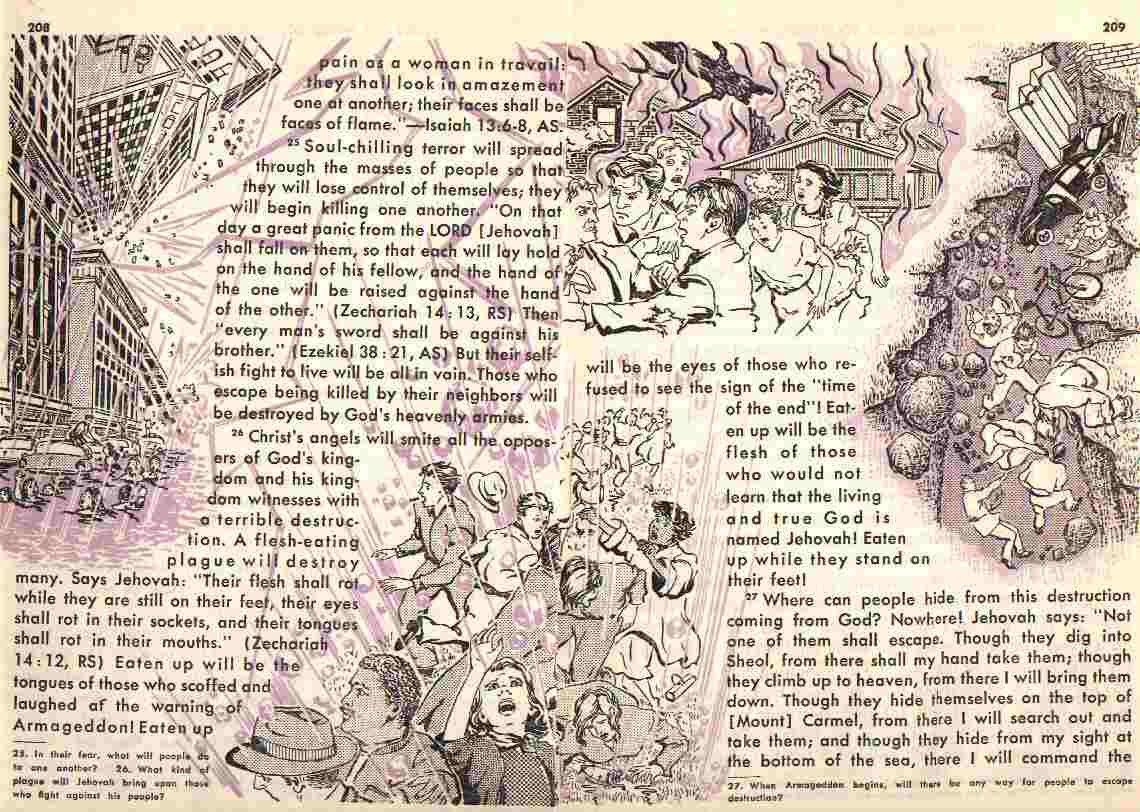 208
pain as a woman in travail:
they shall look in amazement
one at another; their faces shall be
faces of flame."—Isaiah 13:6-8, AS.
25 Soul-chilling terror will spread
through the masses of people so that
they will lose control of themselves; they
will begin killing one another. "On that
day a great panic from the LORD [Jehovah]
shall fall on them, so that each will lay hold
on the hand of his fellow, and the hand of
the one will be raised against the hand
of the other." (Zechariah 14:13, RS) Then
"every man's sword shall be against his
brother." (Ezekiel 38:21, AS) But their self-
ish fight to live will be all in vain. Those who
escape being killed by their neighbors will
be destroyed by God's heavenly armies.
26 Christ's angels will smite all the oppos-
ers of God's king-
dom and his king-
dom witnesses with
a terrible destruc-
tion. A flesh-eating
plague will destroy
many. Says Jehovah: "Their flesh shall rot
while they are still on their feet, their eyes
shall rot in their sockets, and their tongues
shall rot in their mouths." (Zechariah
14:12, RS) Eaten up will be the
tongues of those who scoffed and
laughed at the warning of
Armageddon! Eaten up
25. In their fear, what will people do
to one another? 26. What kind of
plague will Jehovah bring upon those
who fight against his people?
209
will be the eyes of those who re-
fused to see the sign of the "time
of the end"! Eat-
en up will be the
flesh of those
who would not
learn that the living
and true God is
named Jehovah! Eaten
up while they stand on
their feet!
27 Where can people hide from this destruction
coming from God? Nowhere! Jehovah says: "Not
one of them shall escape. Though they dig into
Sheol, from there shall my hand take them; though
they climb up to heaven, from there I will bring them
down. Though they hide themselves on the top of
[Mount] Carmel, from there I will search out and
take them; and though they hide from my sight at
the bottom of the sea, there I will command the
27. When Armageddon begins, will there be any way for people to escape
destruction?